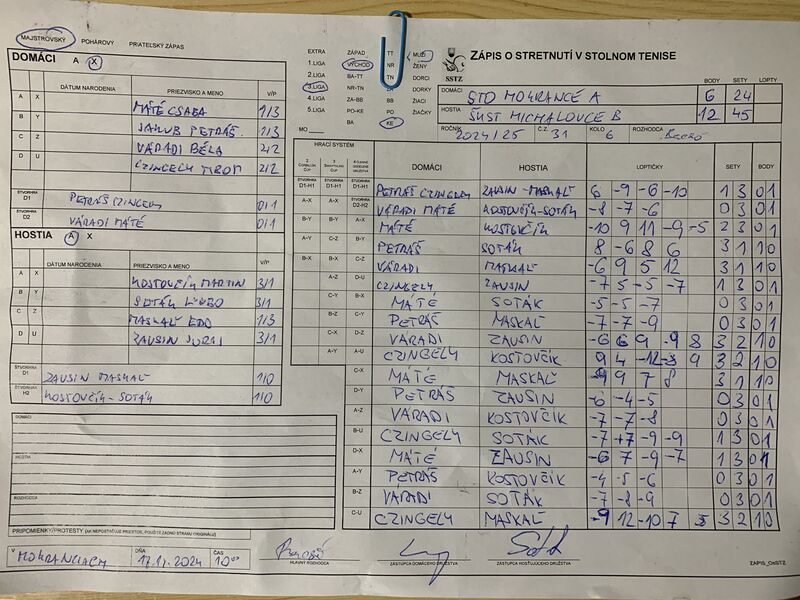 MAJSTROVSKÝ POHÁROVÝ PRIATEĽSKÝ ZÁPAS
DOMÁCI A X
DÁTUM NARODENIA PRIEZVISKO A MENO V/P
A X MÁTÉ CSABA 1/3
B Y JAKUB PETRÁŠ 1/3
C Z VÁRADI BÉLA 2/2
D U CZINGELY TIBOR 2/2
ŠTVORHRA D1 PETRÁŠ CZINGELY 0/1
ŠTVORHRA D2 VÁRADI MÁTÉ 0/1
HOSTIA A X
DÁTUM NARODENIA PRIEZVISKO A MENO V/P
A X KOSTOVČIK MARTIN 3/1
B Y SOTÁK ĽUBO 3/1
C Z MASKAĽ EDO 1/3
D U ZAUSIN JURAJ 3/1
ŠTVORHRA D1 ZAUSIN MASKAĽ 1/0
ŠTVORHRA H2 KOSTOVČIK-SOTÁK 1/0
DOMÁCI
HOSTIA
ROZHODCA
PRIPOMIENKY/PROTESTY (AK NEPOSTAČUJE PRIESTOR, POUŽITE ZADNÚ STRANU ORIGINÁLU)
V MOKRANCIACH DŇA 17.11.2024 ČAS 10
EXTRA ZÁPAD TT MUŽI
1.LIGA VÝCHOD NR ŽENY
2.LIGA BA-TT TN DORCI
3.LIGA NR-TN DORKY
4.LIGA ZA-BB BB ŽIACI
5.LIGA PO-KE PO ŽIAČKY
MO BA KE
SSTZ
ZÁPIS O STRETNUTÍ V STOLNOM TENISE
BODY SETY LOPTY
DOMÁCI STO MOKRANCE A 6 24
HOSTIA ŠUST MICHALOVCE B 12 45
ROČNÍK 2024/25 Č.Z. 31 KOLO 6 ROZHODCA
HRACÍ SYSTÉM DOMÁCI HOSTIA LOPTIČKY SETY BODY
D1-H1 D1-H1 D1-H1 PETRÁŠ CZINGELY ZAUSIN-MASKAĽ 6 -9 -6 -10 1 3 0 1
A-X A-X D2-H2 VÁRADI MÁTÉ KOSTOVČIK-SOTÁK -8 -7 -6 0 3 0 1
B-Y B-Y A-X MÁTÉ KOSTOVČIK -10 9 11 -9 -5 2 3 0 1
A-Y C-Z B-Y PETRÁŠ SOTÁK 8 -6 8 6 3 1 1 0
B-X B-X C-Z VÁRADI MASKAĽ -6 9 5 12 3 1 1 0
A-Z D-U CZINGELY ZAUSIN -7 5 -5 -7 1 3 0 1
C-Y B-X MÁTÉ SOTÁK -5 -5 -7 0 3 0 1
B-Z PETRÁŠ MASKAĽ -7 -7 -9 0 3 0 1
C-X D-Z VÁRADI ZAUSIN -6 6 9 -9 8 3 2 1 0
A-Y A-U CZINGELY KOSTOVČIK 9 4 -12 9 3 2 1 0
C-X MÁTÉ MASKAĽ -9 9 7 8 3 1 1 0
D-Y PETRÁŠ ZAUSIN -6 -4 -5 0 3 0 1
A-Z VÁRADI KOSTOVČIK -7 -7 -8 0 3 0 1
B-U CZINGELY SOTÁK -7 +7 -9 -9 1 3 0 1
D-X MÁTÉ ZAUSIN -6 7 -9 -7 1 3 0 1
A-Y PETRÁŠ KOSTOVČIK -4 -5 -6 0 3 0 1
B-Z VÁRADI SOTÁK -7 -8 -9 0 3 0 1
C-U CZINGELY MASKAĽ -9 12 -10 7 5 3 2 1 0
HLAVNÝ ROZHODCA ZÁSTUPCA DOMÁCEHO DRUŽSTVA ZÁSTUPCA HOSŤUJÚCEHO DRUŽSTVA ZÁPIS_OšSTZ